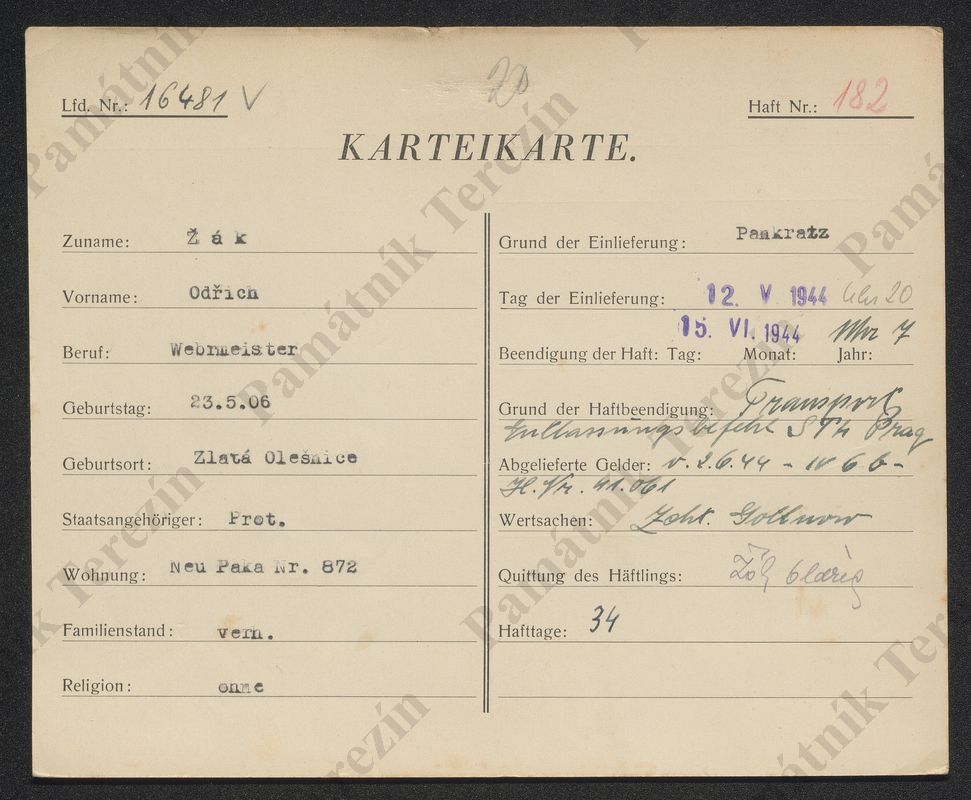 20
Lfd. Nr.: 16481 V
Haft Nr.: 182
KARTEIKARTE.
Zuname: Žák
Vorname: Odřich
Beruf: Webrmeister
Geburtstag: 23.5.06
Geburtsort: Zlatá Olešnice
Staatsangehöriger: Prot.
Wohnung: Neu Paka Nr. 872
Familienstand: verh.
Religion: ohne
Grund der Einlieferung: Pankratz
Tag der Einlieferung: 12. V 1944 Uhr 20
15. VI. 1944 Uhr 7
Beendigung der Haft: Tag: Monat: Jahr:
Grund der Haftbeendigung: Transport
Entlassungsbefehl Prag
Abgelieferte Gelder: v. 2.6.44 - IV 6 b -
H. Nr. 41.061
Wertsachen: Zcht. Gollnow
Quittung des Häftlings: Žák
Hafttage: 34
Památník Terezín